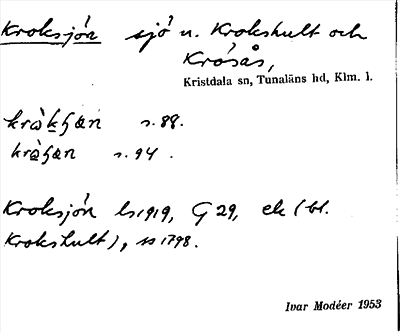 Kroksjön sjö n. Krokshult och
Krósås,
Kristdala sn, Tunaläns hd, Klm. l.
s. 88.
s. 94.
Kroksjön ls 1919, G 29, ek (bl.
Krokshult), ss 1798.
Ivar Modéer 1953